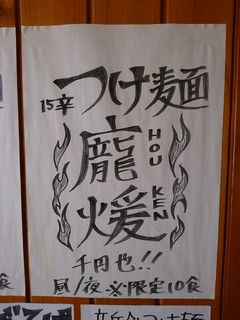 15辛つけ麺
龐煖
HOU KEN
千円也!!
昼/夜 ※限定10食
食